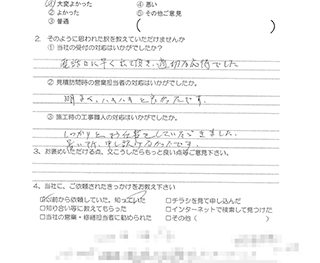 ① 大変よかった　④ 悪い
② よかった　⑤ その他ご意見
③ 普通　(　)
2. そのように思われた訳を教えていただけませんか
① 当社の受付の対応はいかがでしたか。
早く 適切な応対でした
② 見積訪問時の営業担当者の対応はいかがでしたか。
明るく、ハキハキと よかったです。
③ 施工時の工事職人の対応はいかがでしたか。
しっかりと お仕事をしていただきました。
3. お褒めいただける点、又こうしたらもっと良い点等ご意見下さい。
4. 当社に、ご依頼されたきっかけをお教え下さい
☑以前から依頼していた。知っていた　□チラシを見て申し込んだ
□知り合い等に教えてもらった　□インターネットで検索して見つけた
□当社の営業・修繕担当者に勧められた　□その他 (　)